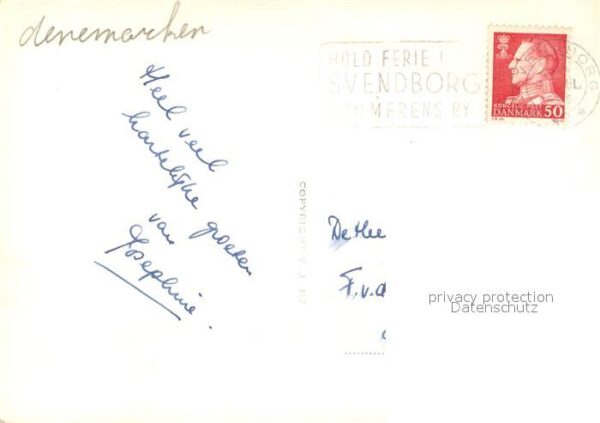 denemarken
HOLD FERIE I
SVENDBORG
SOMMERENS BY
KONGELIG POST
DANMARK 50
Heel veel
hartelijke groeten
van
Josephine.
COPYRIGHT
De Hee
F.v.d
privacy protection
Datenschutz